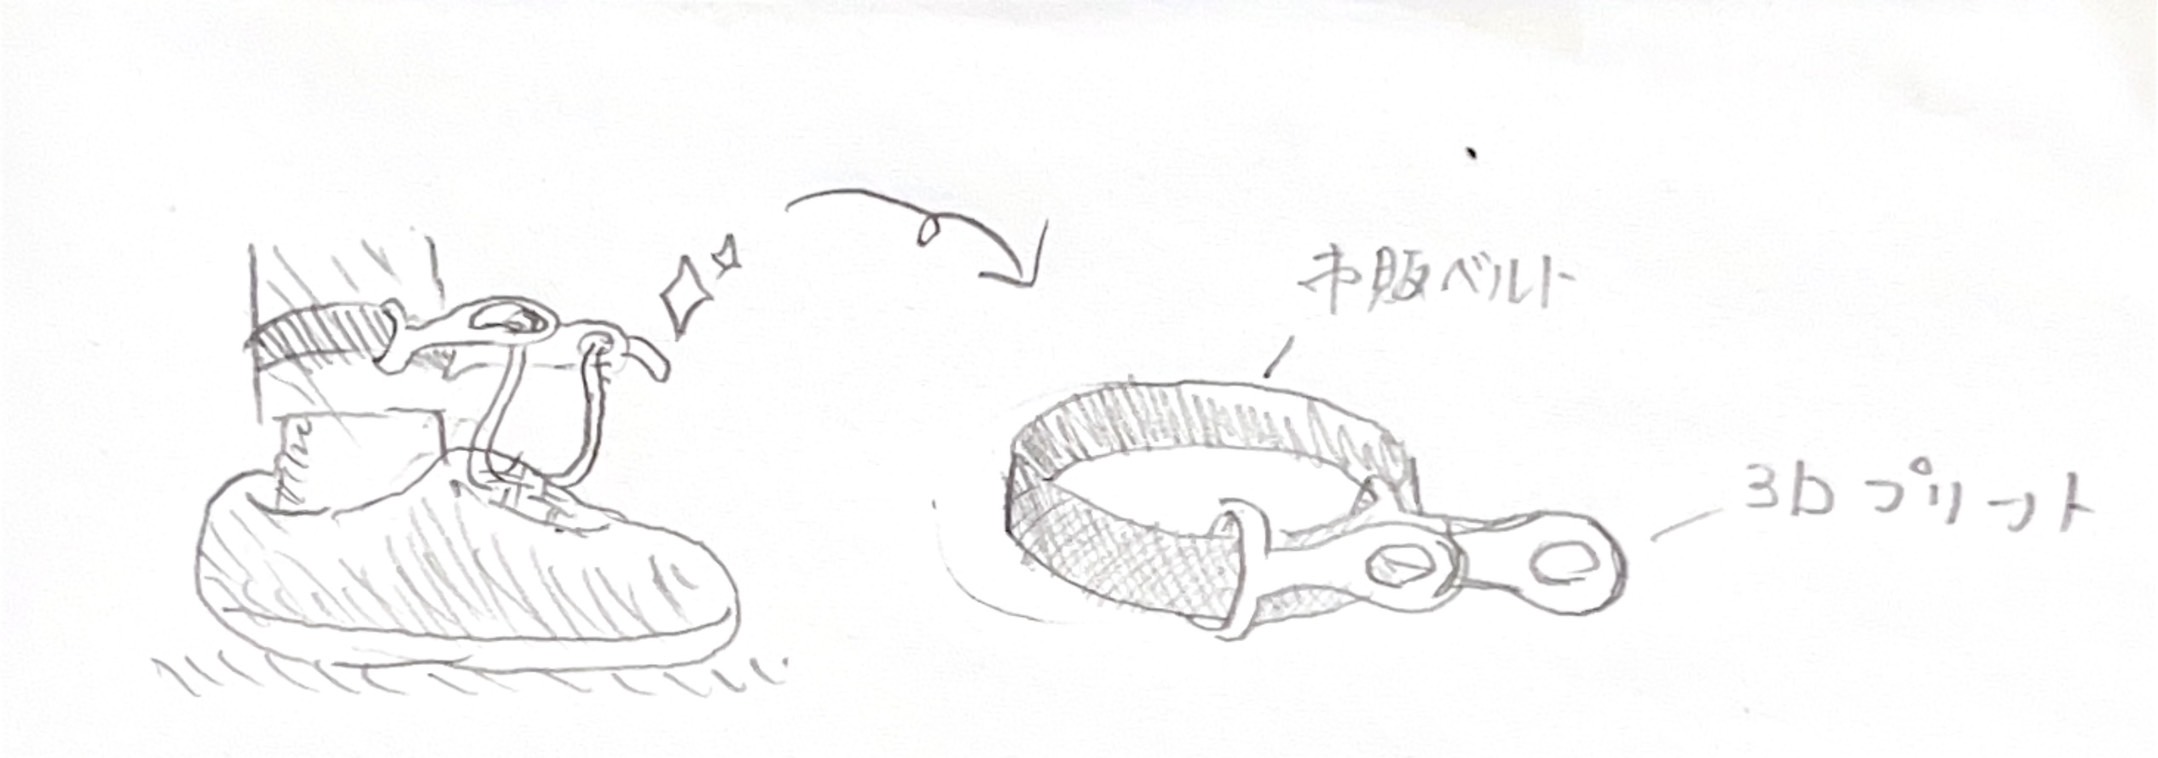 市販ベルト
3Dプリント